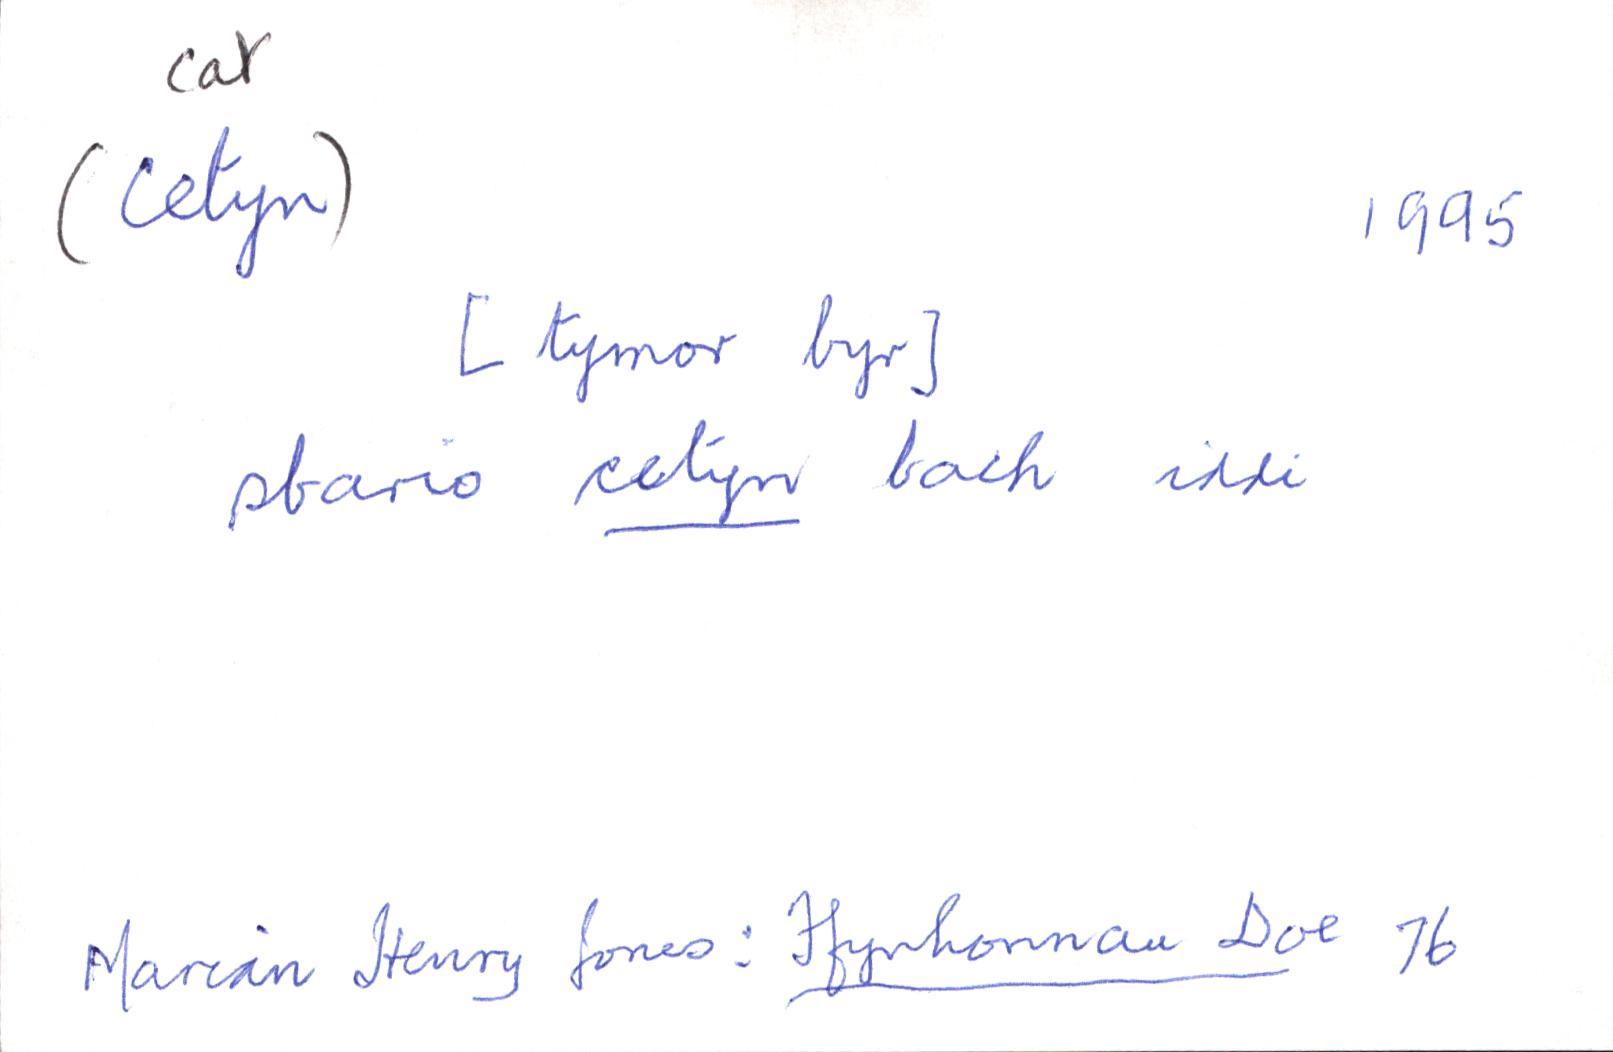 cat
(cetyn)
1995
[tymor byr]
sbario cetyn bach iddi
Marian Henry Jones: Ffynhonnau Doe 76